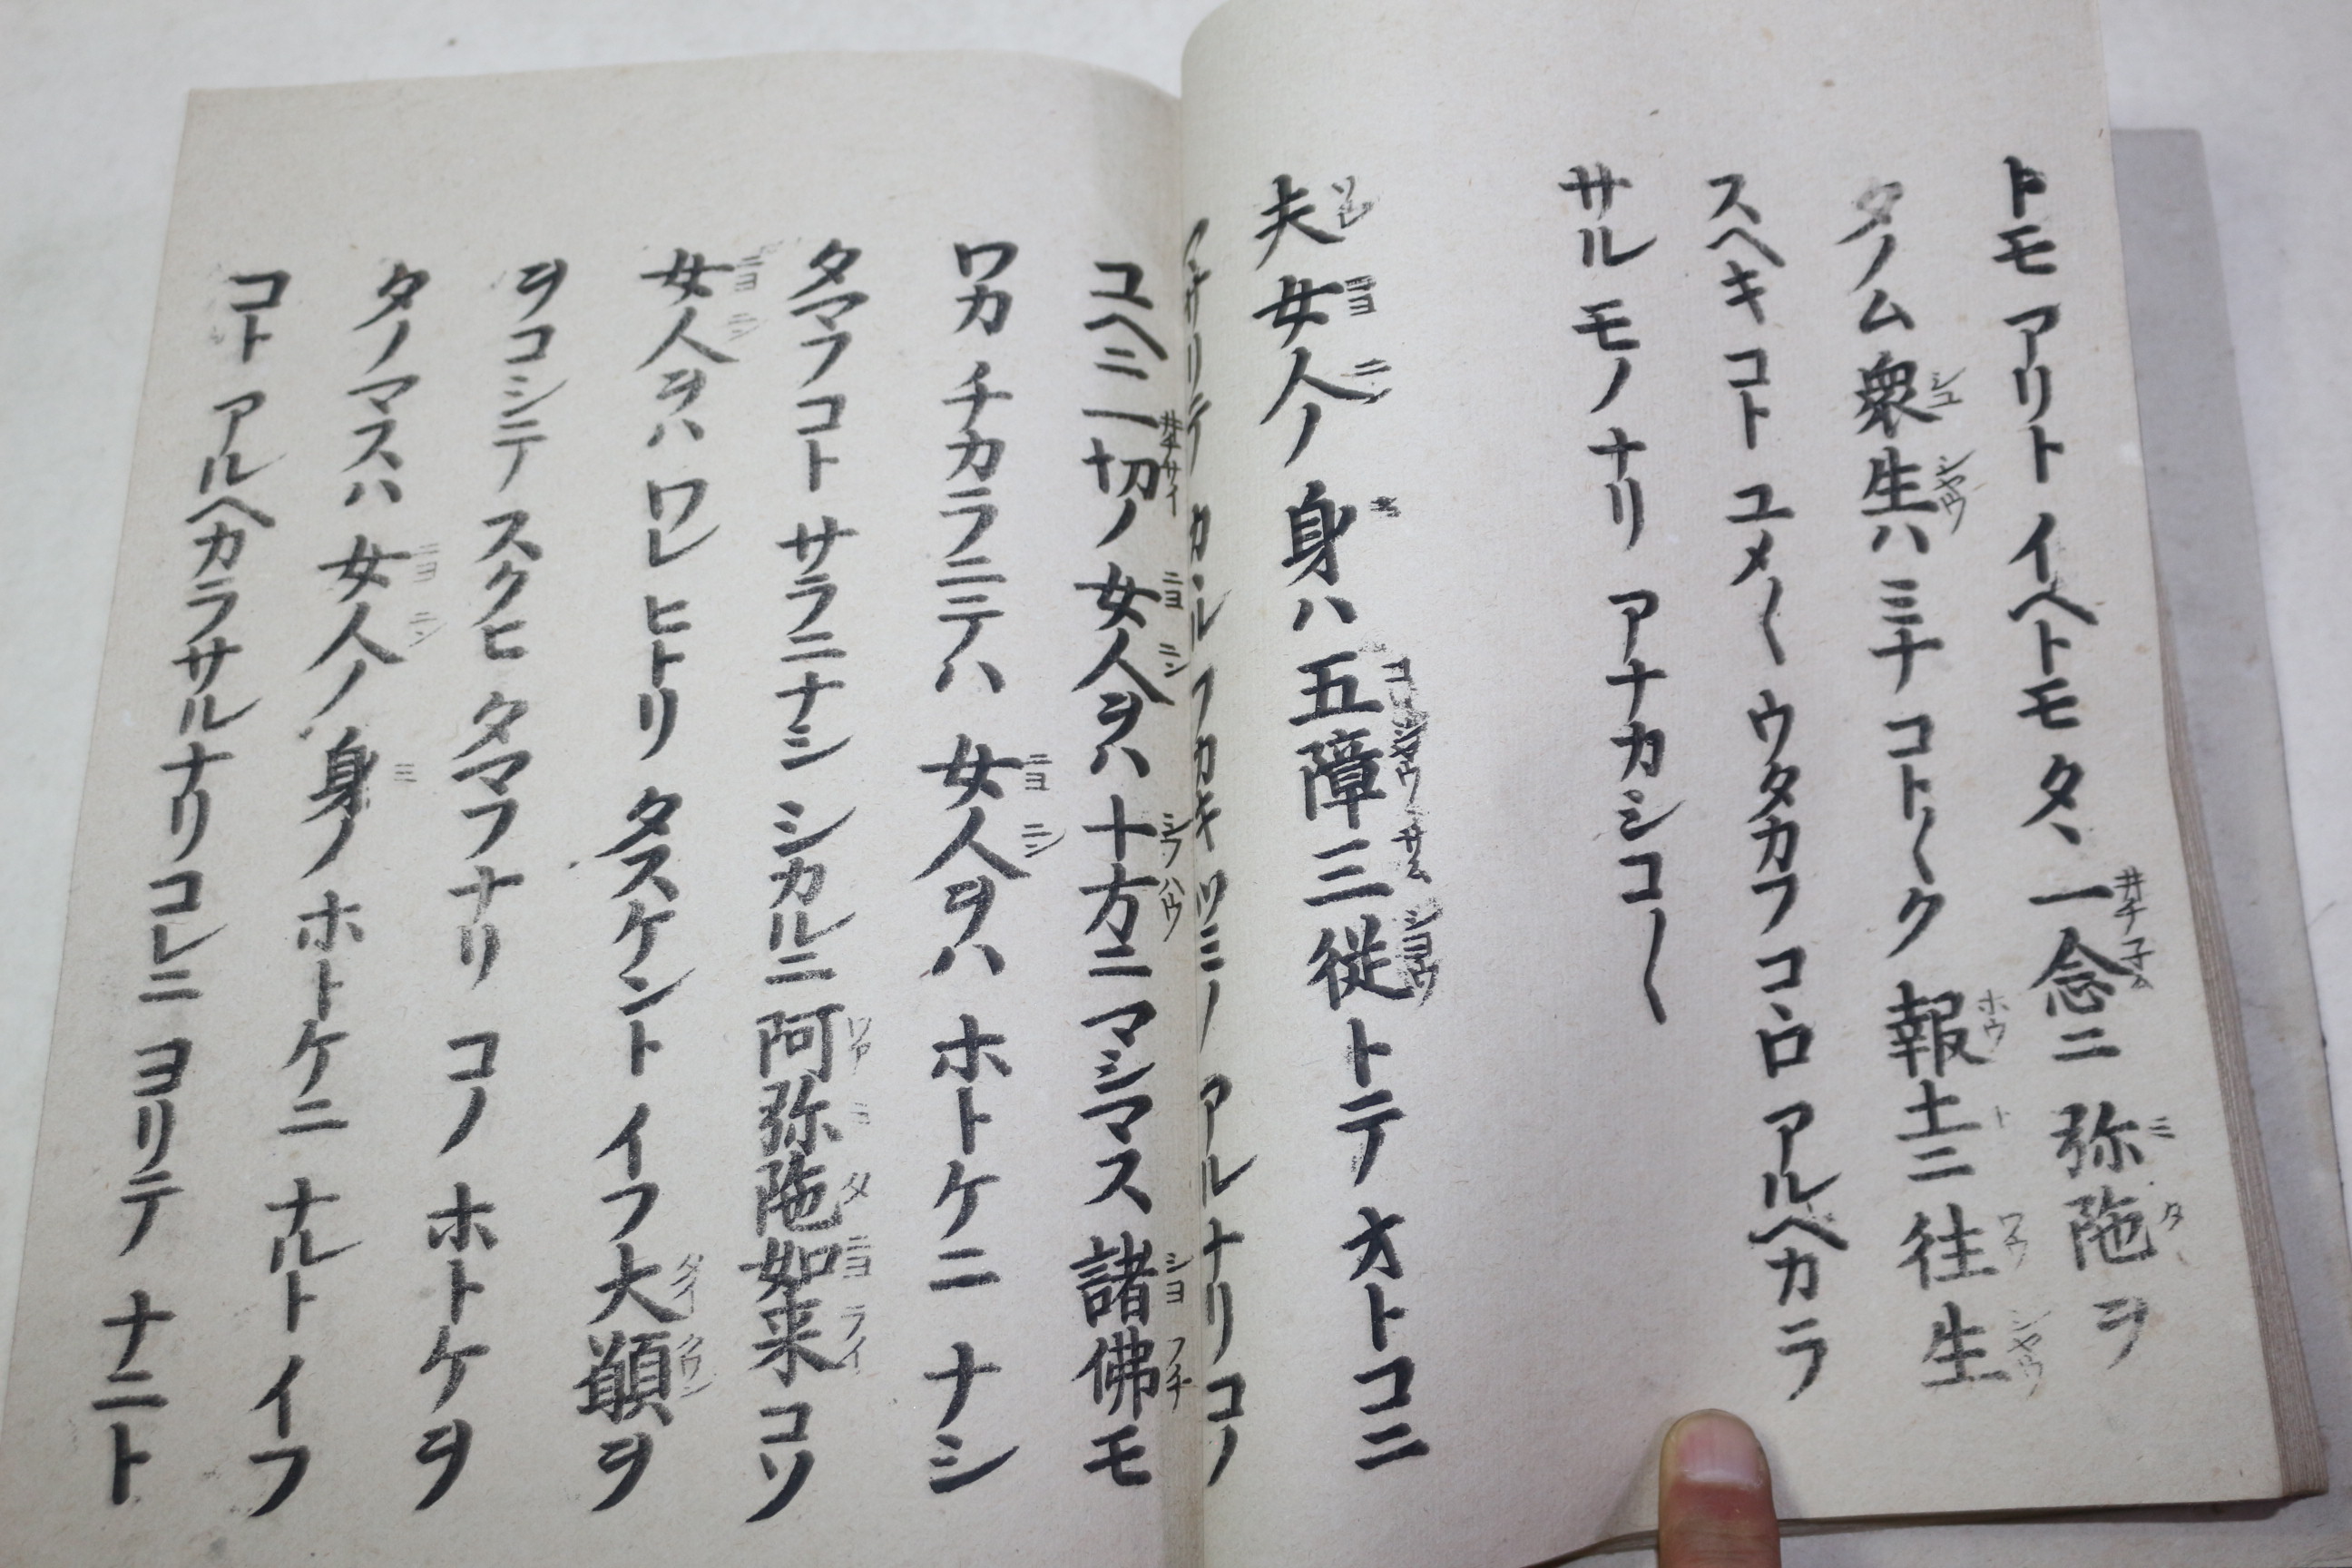 トモ アリト イヘトモ タヽ 一念ニ 弥陀ヲ
タノム 衆生ハ ミナ コト〱ク 報土ニ 往生
スヘキ コト ユメ〱 ウタカフ コヽロ アルヘカラ
サル モノ ナリ アナカシコ〱
夫 女人ノ 身ハ 五障三従トテ オトコニ
マサリテ カヽル フカキ ツミノ アルナリ コノ
ユヘニ 一切ノ 女人ヲハ 十方ニ マシマス 諸佛モ
ワカ チカラニテハ 女人ヲハ ホトケニ ナシ
タマフコト サラニナシ シカルニ 阿弥陀如来コソ
女人ヲハ ワレ ヒトリ タスケント イフ 大願ヲ
ヲコシテ スクヒ タマフナリ コノ ホトケヲ
タノマスハ 女人ノ 身ノ ホトケニ ナルト イフ
コト アルヘカラサルナリ コレニ ヨリテ ナニト